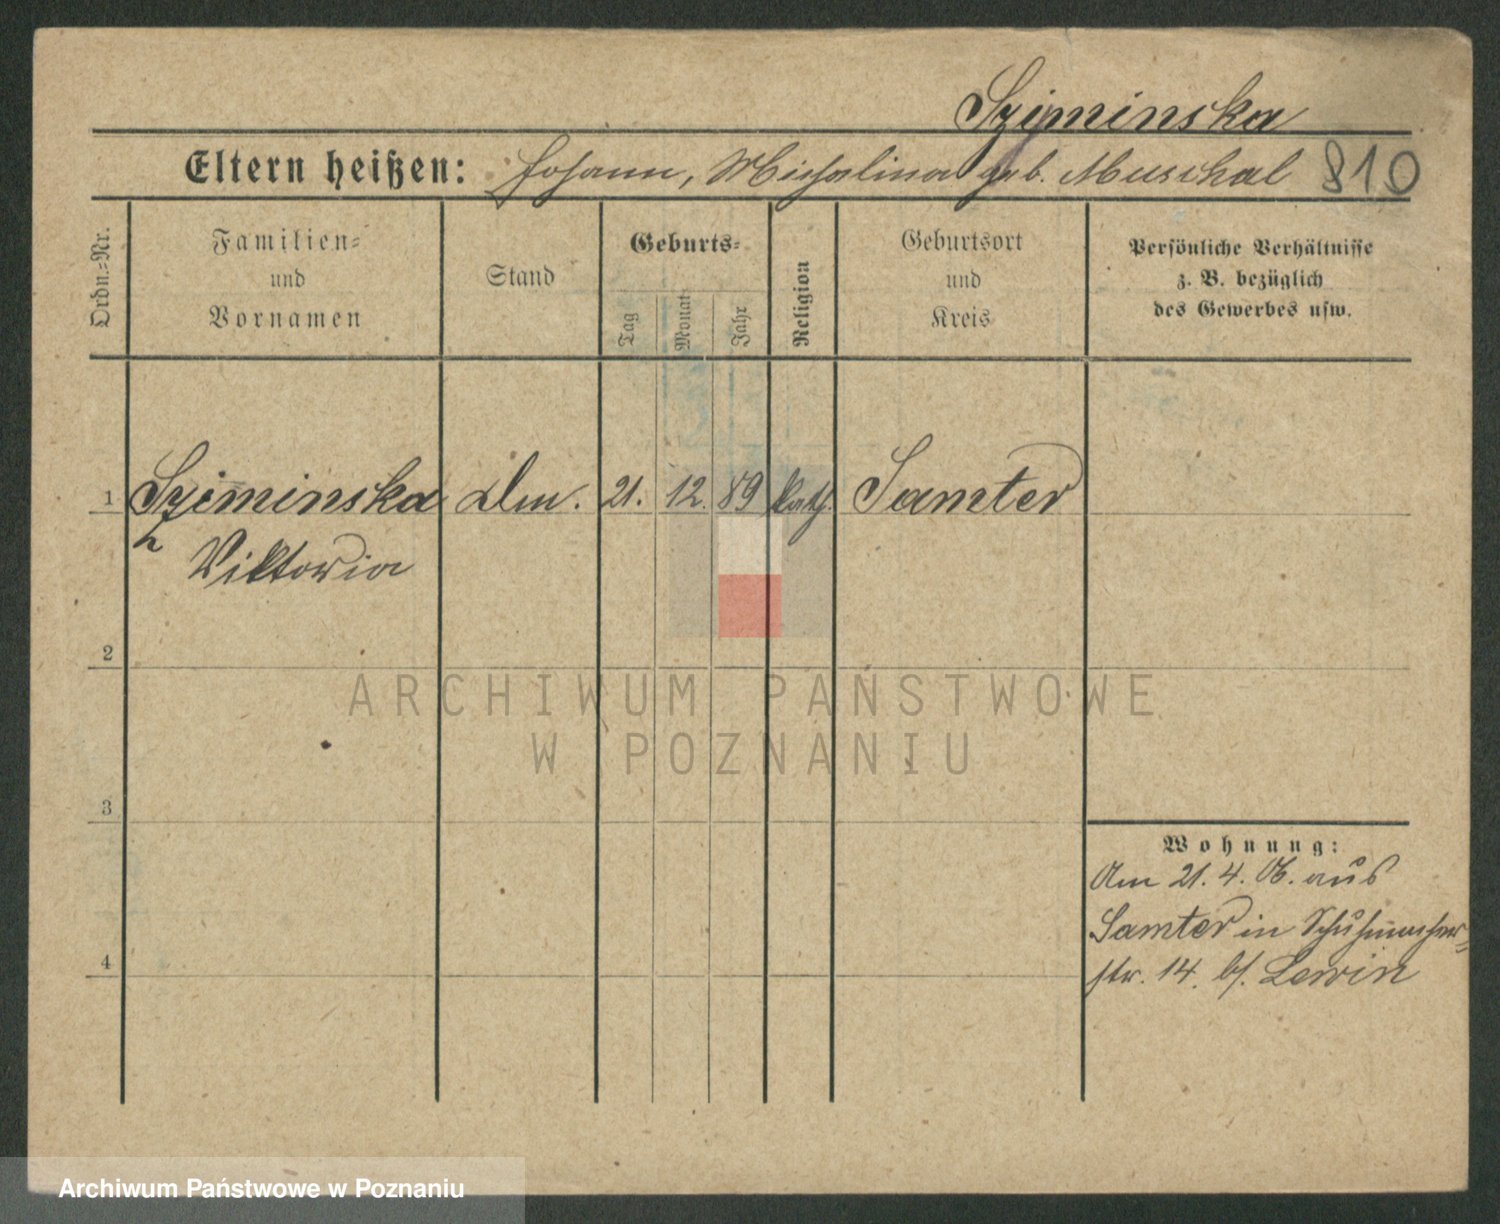 Sziminska
Eltern heißen: Johann, Michalina geb. Muschal 810
Ordn.-Nr.
Familien-
und
Vornamen
Stand
Geburts-
Tag
Monat
Jahr
Religion
Geburtsort
und
Kreis
Persönliche Verhältnisse
z. B. bezüglich
des Gewerbes usw.
1 Sziminska Dm. 21. 12. 89 kath. Samter
Viktoria
2
ARCHIWUM PAŃSTWOWE
W POZNANIU
3
Wohnung:
Am 21. 4. 06. aus
Samter in Schuhmacher-
str. 14. b/. Lewin
4
Archiwum Państwowe w Poznaniu